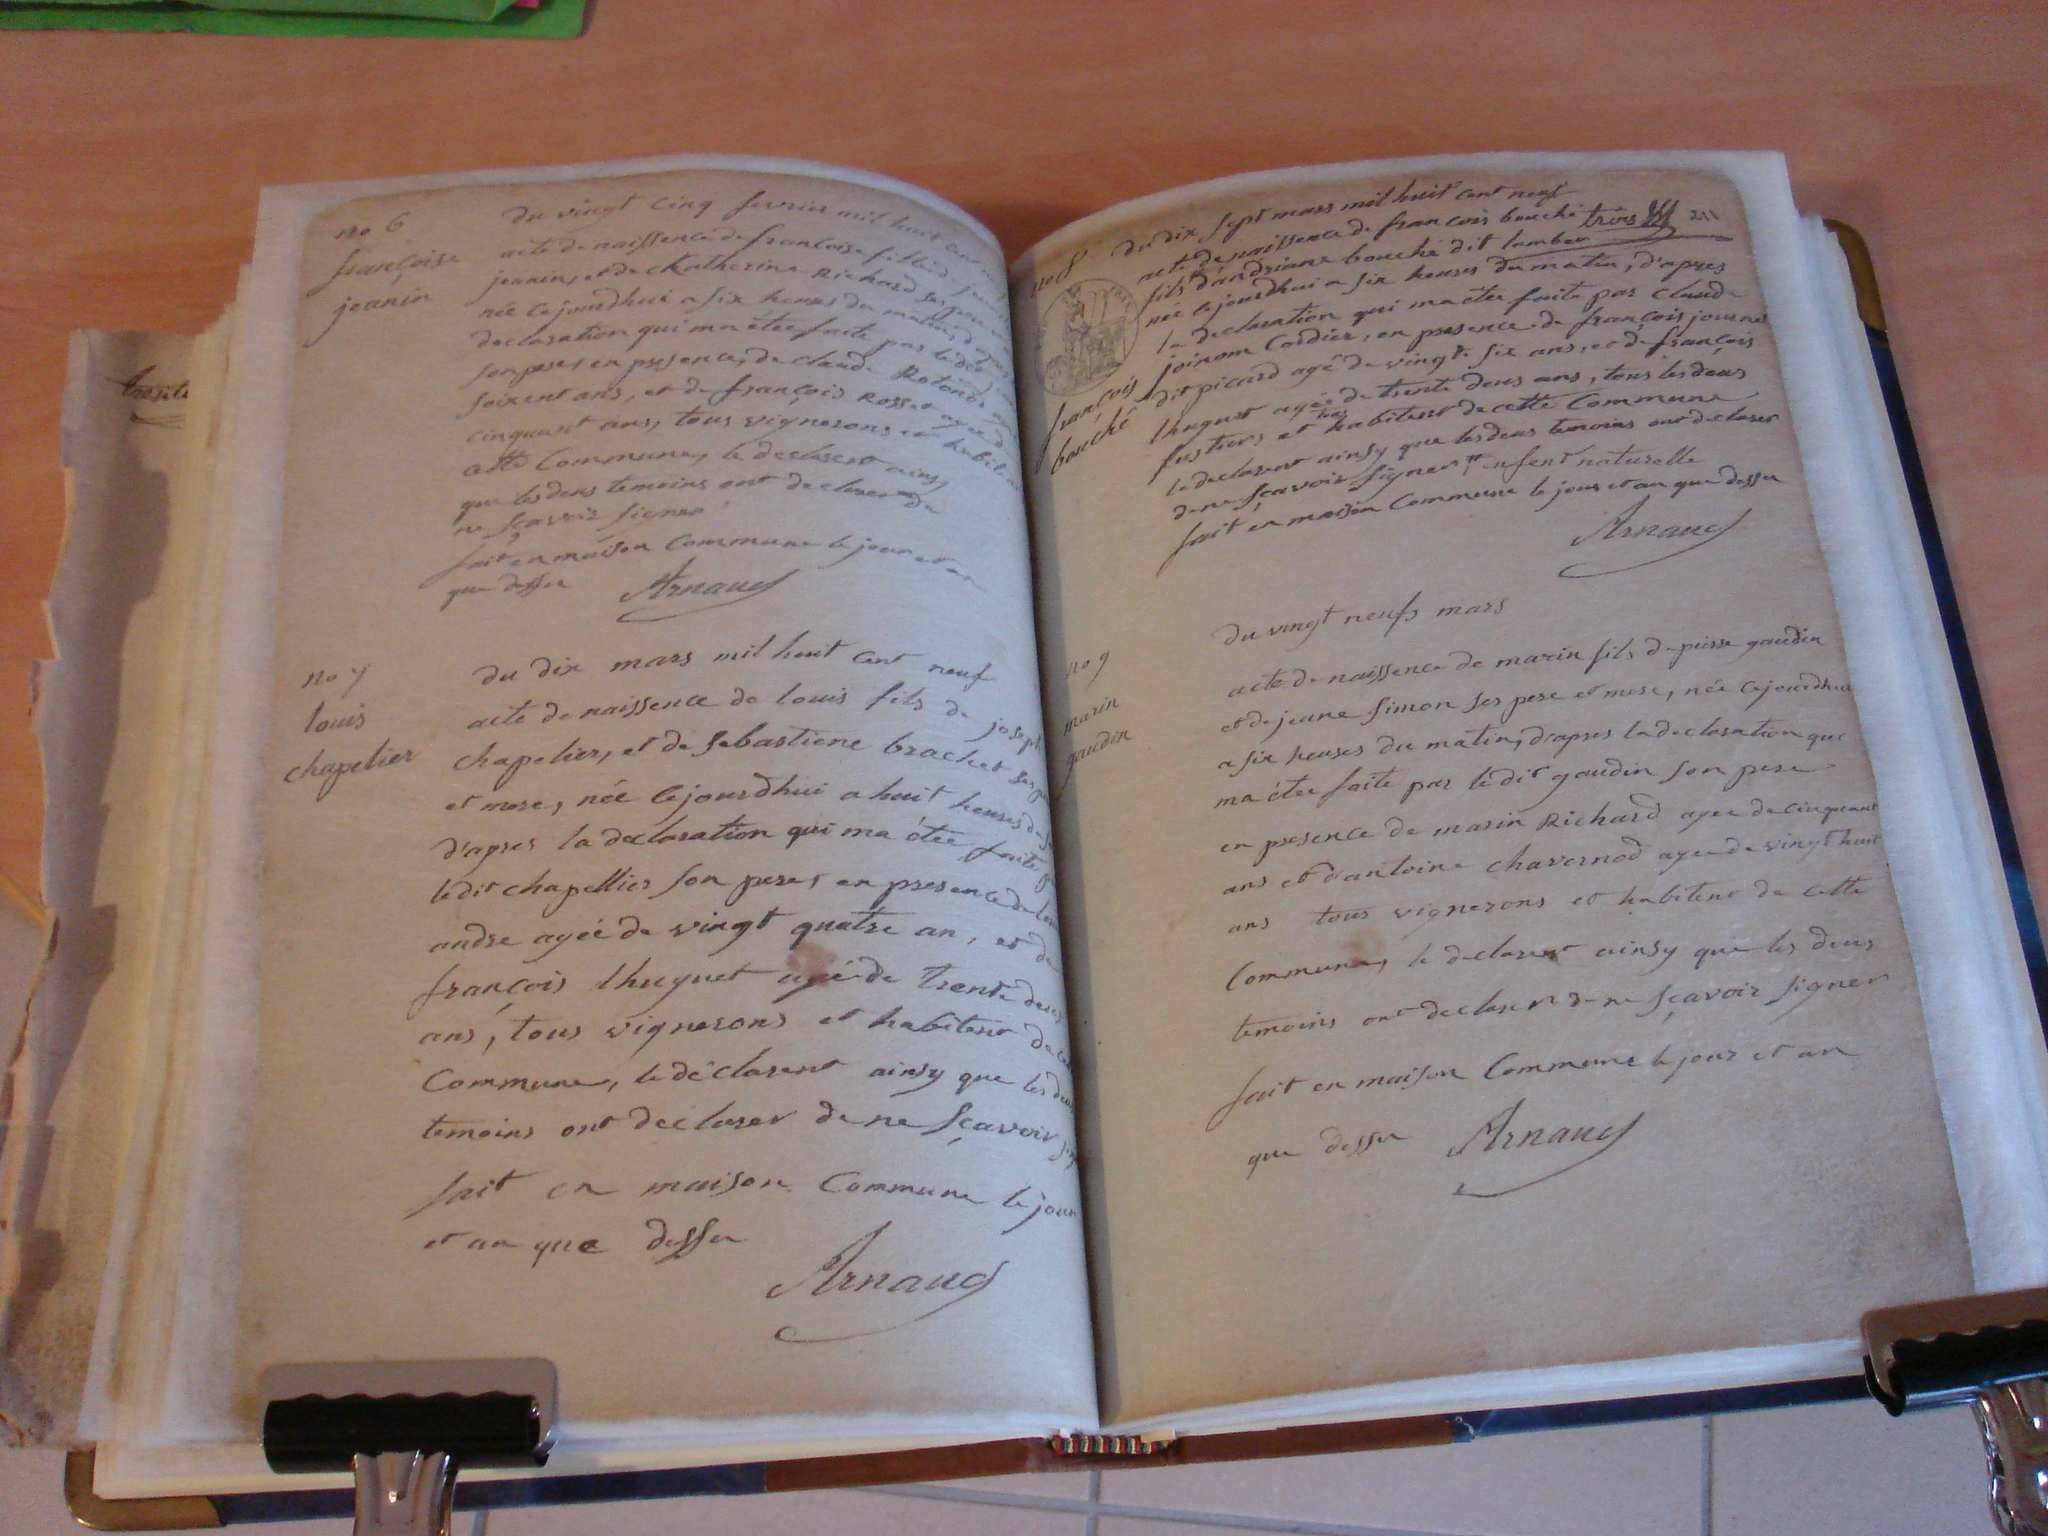 no 6
françoise
jeanin
du vingt cinq fevrier mil huit cent
acte de naissence de francoise fille de
jeanin, et de Katherine Richard ses pere
née cejourdhui a six heures du matin, d'apres
declaration qui ma étee faite par ledit
son pere, en presence, de claude Rotonde
soixent ans, et de françois Rosset agee de
cinquant ans, tous vignerons et habitent
cette Commune, le declarent ainsy
que les deus temoins ont declarer de
ne sçavoir signer
fait en maison Commune le jour et an
que desser Arnaud
no 7
louis
chapelier
du dix mars mil huit cent neuf
acte de naissence de louis fils de joseph
chapelier, et de sebastiene brachet ses
et mere, née cejourdhui a huit heures du
d'apres la declaration qui ma étee faite
ledit chapellier son pere, en presence de
andre agée de vingt quatre an, et de
françois lhuguet agée de trente deus
ans, tous vignerons et habitent de
Commune, le déclarent ainsy que les deus
temoins ont declarer de ne sçavoir
fait en maison Commune le jour
et an que desser
Arnaud
trois
211
no 8
françois
bouché
du dix sept mars mil huit cent neuf
acte de naissence de françois bouché
fils d'andriane bouché dit lamber
née cejourdhui a six heures du matin, d'apres
la declaration qui ma étee faite par claude
joinom Cordier, en presence de françois journet
dit picard agé de vingt six ans, et de françois
lhuguet agée de trente deus ans, tous les deus
fustiers et habitent de cette Commune
le declarent ainsy que les deus temoins ont declarer
de ne sçavoir signer enfent naturelle
fait en maison Commune le jour et an que desser
Arnaud
no 9
marin
gaudin
du vingt neufs mars
acte de naissence de marin fils de pierre gaudin
et de jeane simon ses pere et mere, née cejourdhui
a six heures du matin, d'apres la declaration que
ma étee faite par ledit gaudin son pere
en presence de marin Richard agee de cinquant
ans et d'antoine chavernod agee de vingt huit
ans tous vignerons et habitent de cette
Commune, le declarent ainsy que les deus
temoins ont declarer de ne sçavoir signer
fait en maison Commune le jour et an
que desser Arnaud